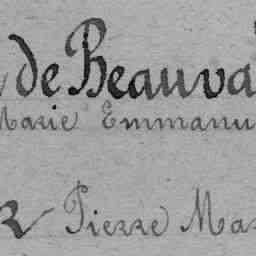 de Beauva
Marie Emmanu
Pierre Ma